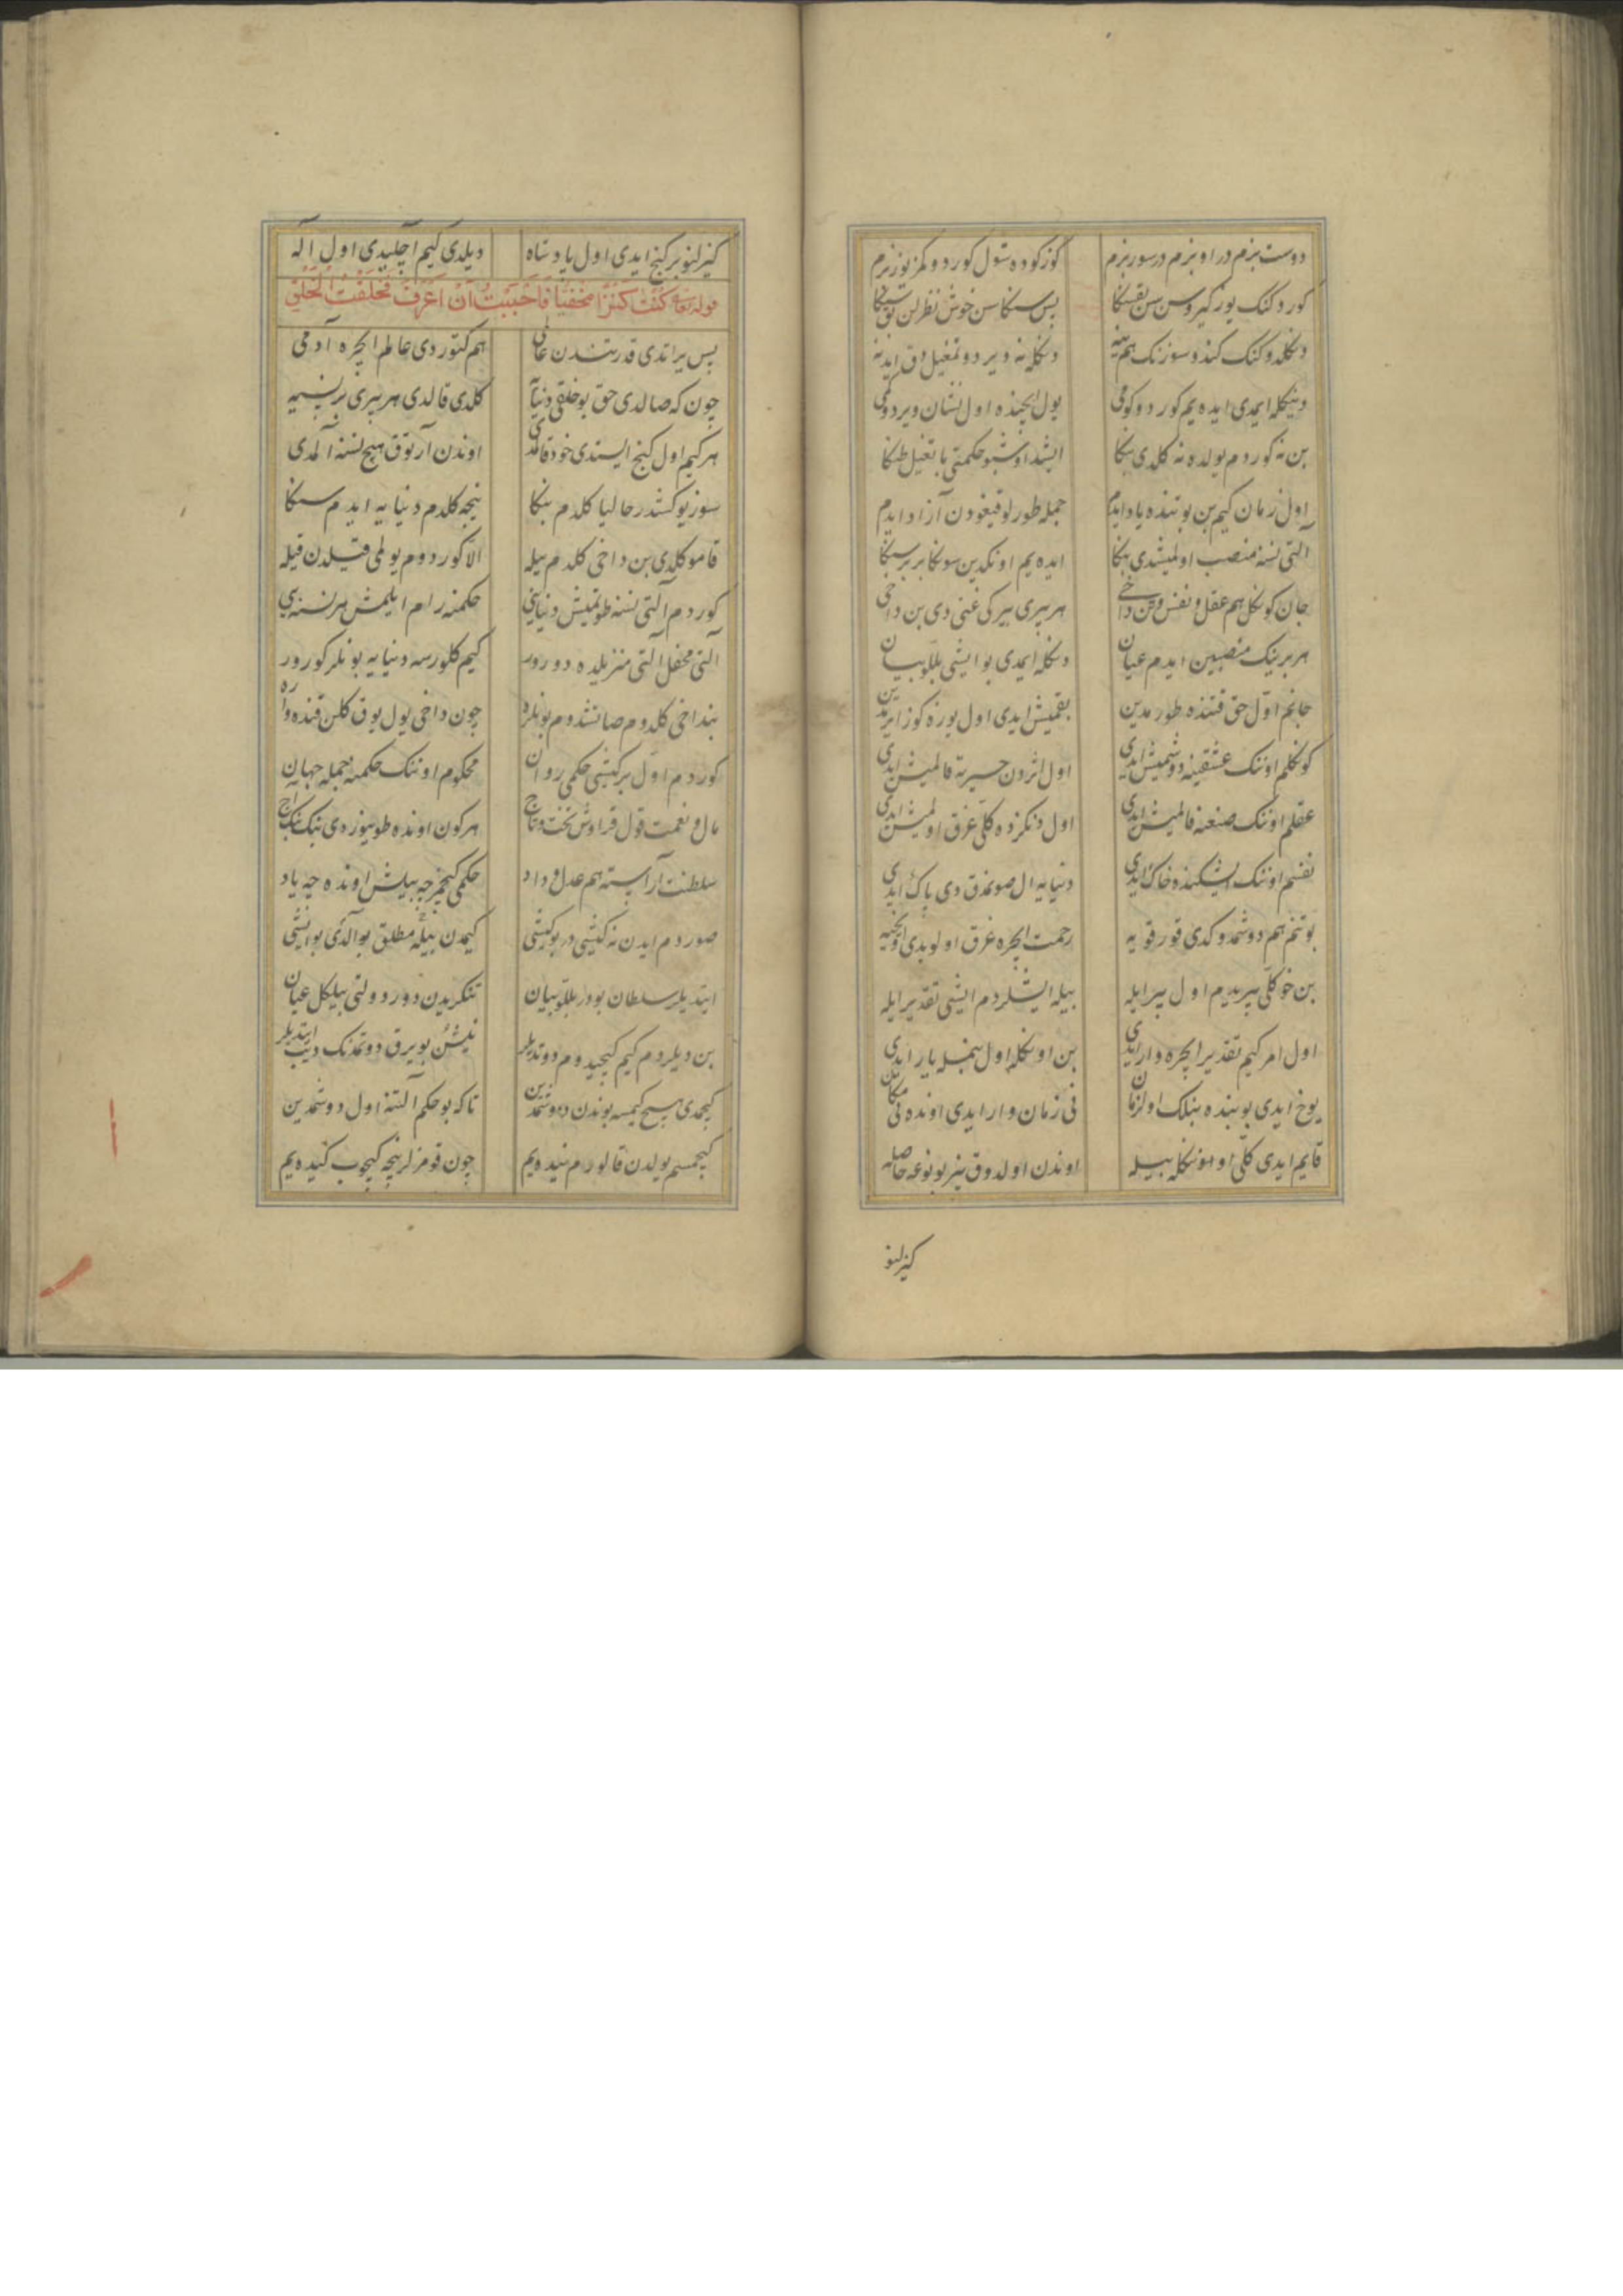 دوست بزم در او بزم در سور بزم کوزکوده شول کوردوکمز یوز بزم
کوردکنک یوز کیروسن سن بقسکا بس سکا سن خوش نظرلن بق
دکلدوکنک کندوسوزنک هم ینه دکله نه دیر دوتمغیل دق
ودیکله ایمدی ایده یم کوردوکومی یول ایچنده اول نشان ویردوکمی
بن نه کوردم یولده نه کلدی بکا ایشد اوشبو حکمتی باتغیل طکا
اول زمان کیم بن بو تنده یاد ایدم جمله طورلو قیغودن آزاد ایدم
آلتی نسنه منصب اولمشدی بکا ایده یم اونکدین سونکا بر بر سکا
جان کوکل هم عقل و نفس و تن داخی هر بیری بیر کی غنی دی بن داخی
هر برینک منصبین ایدم عیان دکله ایمدی بو ایشی بللو بیان
جانم اول حق قتنده طورمدین بقمیش ایدی اول یوزه کوز ایرمدین
کوکلم اونک عشقینه دوشمیش ایدی اول اثرون حسرته قالمیش ایدی
عقلم اونک صنعنه قالمیش ایدی اول دکزده کلی غرق اولمیش ایدی
نفسم اونک ایشکنده خاک ایدی دنیایه ال صونمدق دی پاک ایدی
بو تنم هم دوشمدوکدی قورقویه رحمت ایچره غرق اولوبدی
بن خو کلی بیریدم اول بیر ایله بیله ایشلردم ایشی تقدیر ایله
اول امر کیم تقدیر ایچره وار ایدی بن اونکله اول بنمله یار ایدی
یوخ ایدی بو بنده بنلک اول زمان نی زمان وار ایدی اونده نی مکان
قایم ایدی کلی او اونکله بیله اوندن اولدوق بیز بو نوعه حاصله
کیزلنو
کیزلنو بر کنج ایدی اول پادشاه دیلدی کیم آچلیدی اول اله
قوله تعالی کُنْتُ کَنْزًا مَخْفِیًّا فَاَحْبَبْتُ اَنْ اُعْرَفَ فَخَلَقْتُ الْخَلْقَ
بس یراتدی قدرتندن عالمی هم کتوردی عالم ایچره آدمی
چون که صالدی حق بو خلقی دنیایه کلدی قالدی هر بیری بر نسیه
هر کیم اول کنج ایستدی خود قالمدی اوندن آرتوق هیچ نسنه آلمدی
سوز یوکشدر حالیا کلدم بنکا نیجه کلدم دنیایه ایدم سنکا
قامو کلدی بن داخی کلدم بیله الا کوردوم یولمی قیلدن قیله
کوردم آلتی نسنه طوتمیش دنیایی حکمنه رام ایلمش هر نسنه یی
آلتی محفل آلتی منزیلده دورور کیم کلورسه دنیایه بونلر کورور
بنداخی کلدوم صانشدوم بونلره چون داخی یول یوق کلن قنده واره
کوردم اول بر کیشی حکمی روان محکوم اونک حکمنه جمله جهان
مال و نعمت قول قراوش تخت و تاج هر کون اونده طویوزدی نیک نک آج
سلطنت آراسته هم عدل و داد حکمی کیچر چه بیلش اونده چه یاد
صوردم ایدن نه کیشی در بو کیشی کیمدن بیله مطلق بو آلدی بو ایشی
ایتدیلر سلطان بودر بللو بیان تنکریدن دور دولتی بیلکل عیان
بن دیلردم کیم کیچیدوم دوتدیلر نیشن بویرق دوتمدنک دیب ایتدیلر
کیچمدی هیچ کیمسه بوندن دوشمدین تا که بو حکم آلتنه اول دوشمدین
کیچمسم یولدن قالورم نیده یم چون قومزلر نیجه کیچوب کیده یم